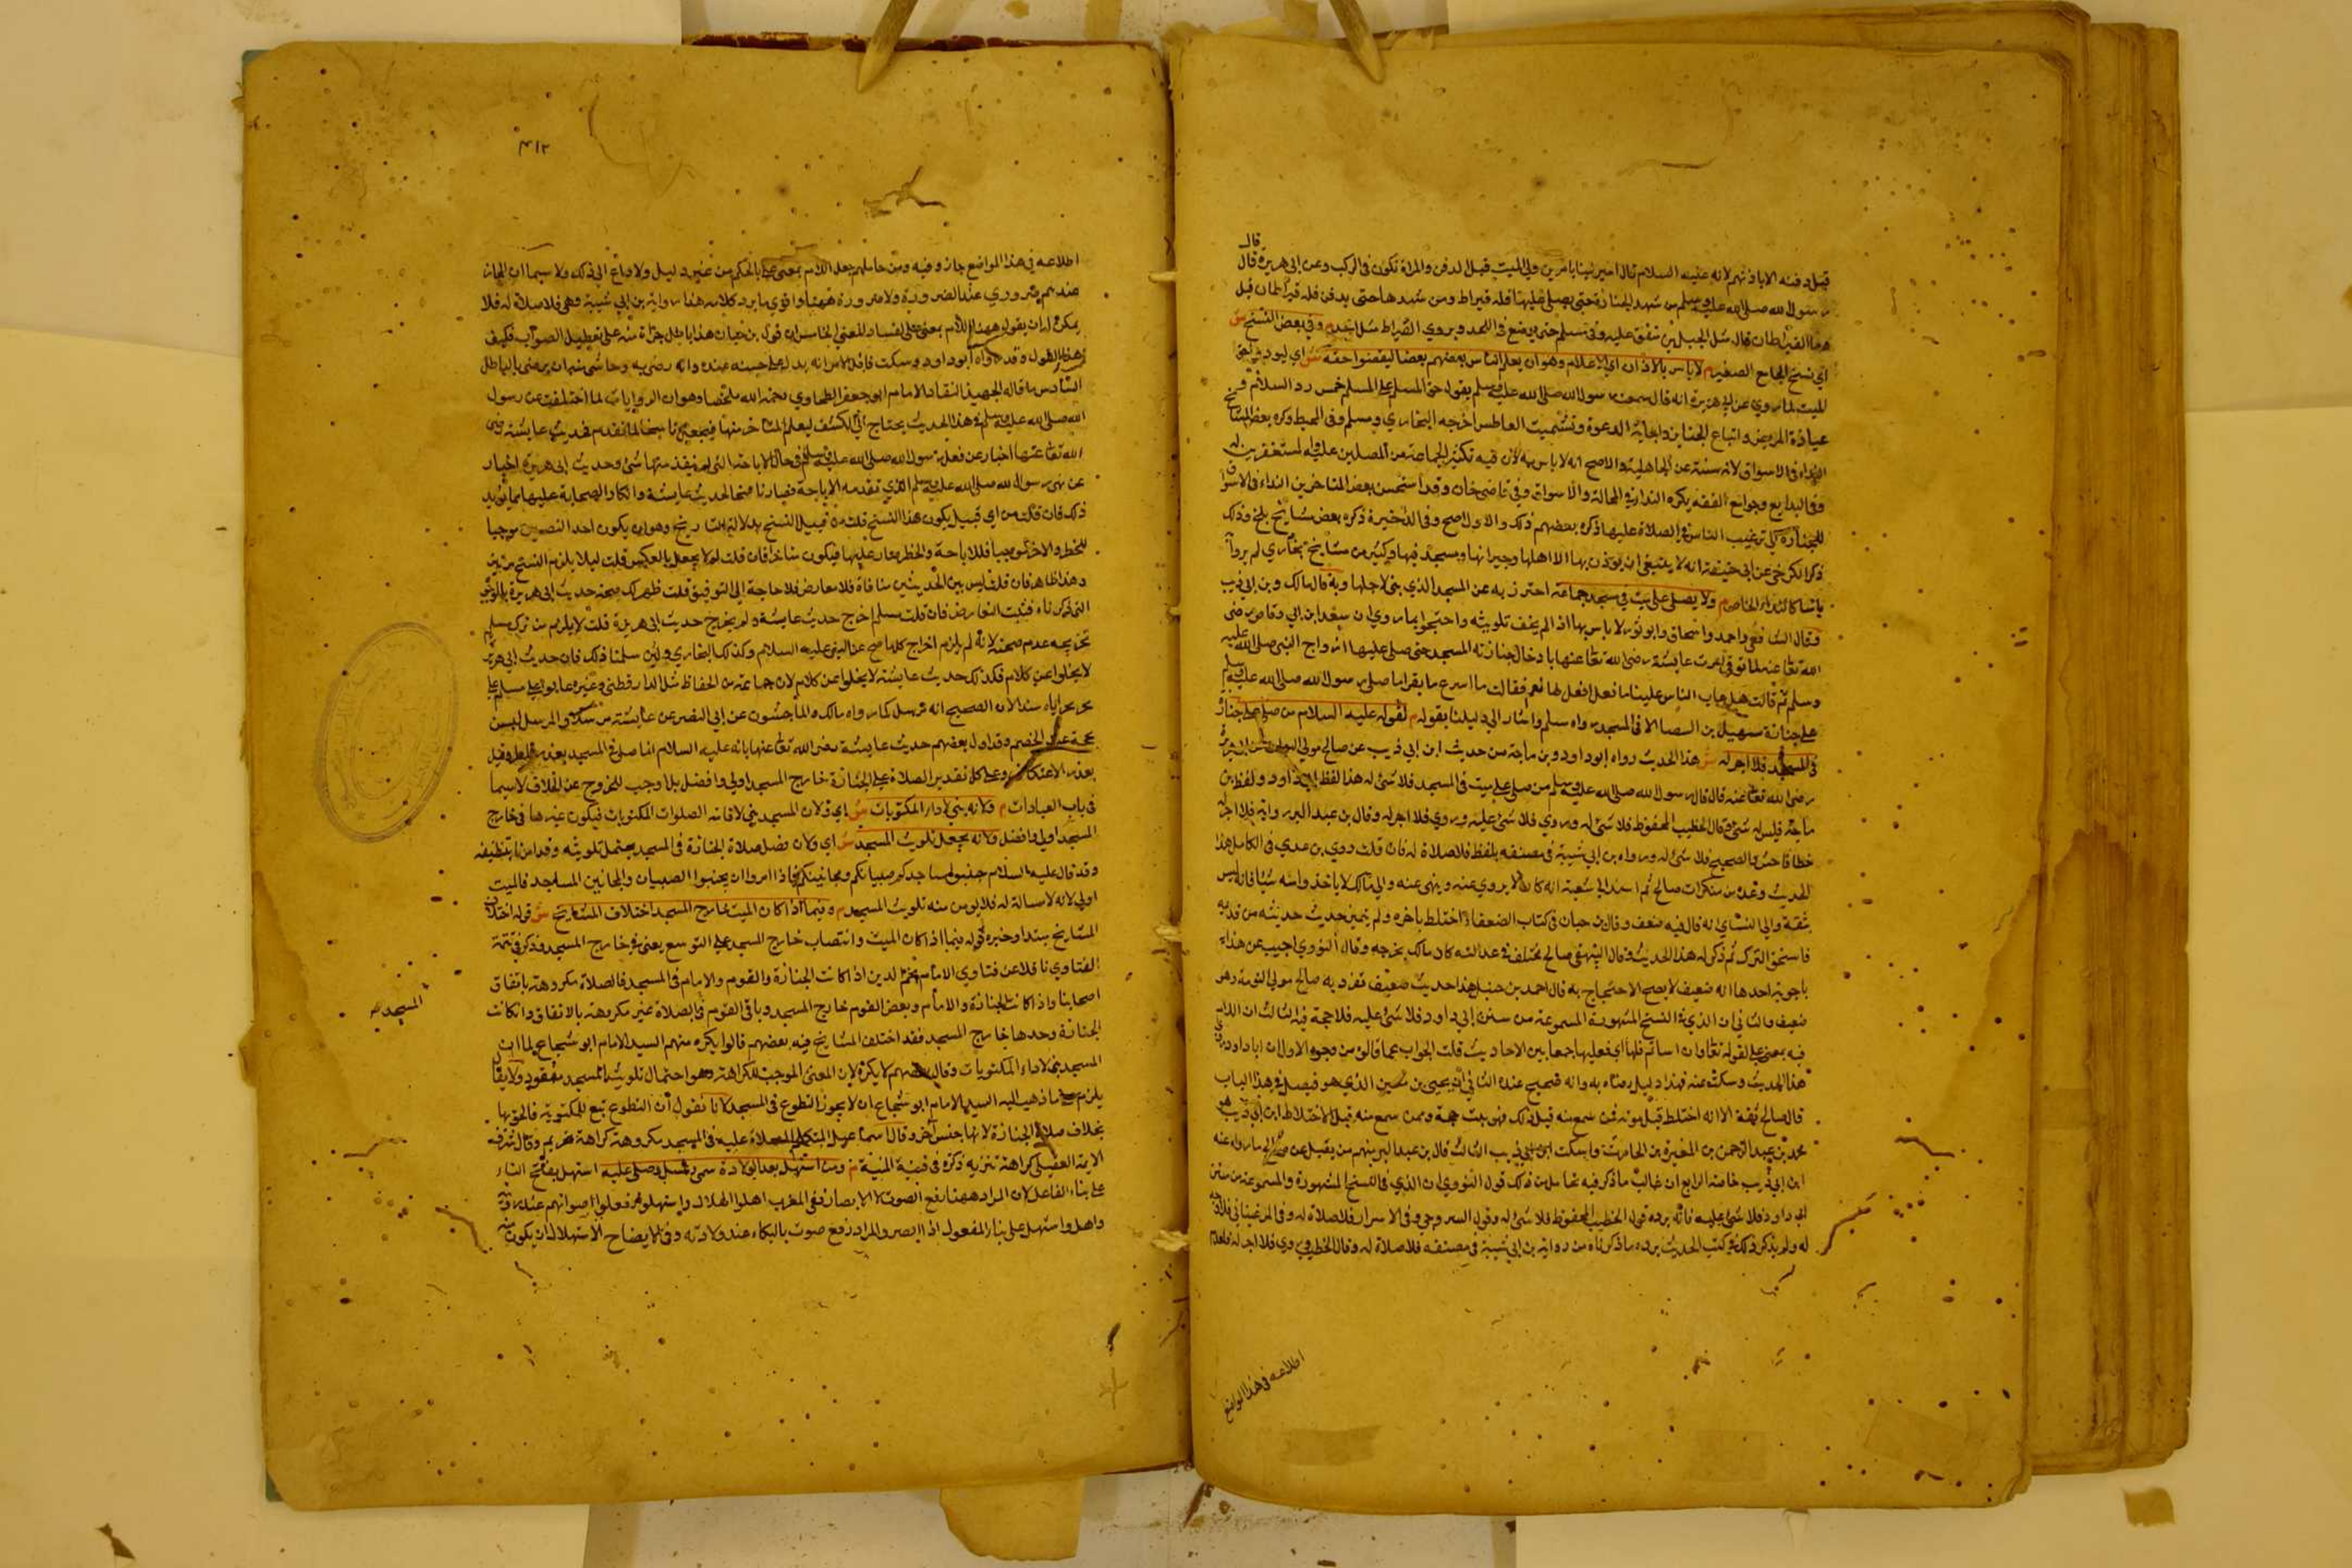 قال
قبل دفنه الا باذنهم لانه عليه السلام قال اميرين وليسا باميرين ولي الميت قبل الدفن والمراة تكون في الركب وعن ابي هريرة قال
رسول الله صلى الله عليه وسلم من شهد الجنازة حتى يصلي عليها فله قيراط ومن شهدها حتى يدفن فله قيراطان قيل
وما القيراطان قال مثل الجبلين متفق عليه وفي مسلم حتى يوضع في اللحد ويروي القيراط مثل احد م وفي بعض النسخ ش
اي نسخ الجامع الصغير م لا باس بالاذان اي الاعلام وهو ان يعلم الناس بعضهم بعضا ليقضوا حقه ش اي ليودوا حق
الميت لما روي عن ابي هريرة انه قال سمعت رسول الله صلى الله عليه وسلم يقول حق المسلم على المسلم خمس رد السلام و
عيادة المريض واتباع الجنايز واجابة الدعوة وتشميت العاطس اخرجه البخاري ومسلم وفي المحيط وكره بعض المشايخ
النداء في الاسواق لانه سنة عن الجاهلية والاصح انه لا باس به لان فيه تكثير الجماعة من المصلين عليه والمستغفرين له
وفي البدايع وجوامع الفقه يكره النداء في المحالة والاسواق وفي قاضي خان وقد استحسن بعض المتاخرين النداء في الاسواق
للجنازة كي ترغيب الناس في الصلاة عليها وذكره بعضهم ذلك والاول اصح وفي الذخيرة ذكره بعض مشايخ بلخ وذلك
ذكر الكرخي عن ابي حنيفة انه لا ينبغي ان يوذن بها الا اهلها وجيرانها ومسجد فيها وكثير من مشايخ بخاري لم يروا
باسا كالنداء الخاص م ولا يصلى على ميت في مسجد جماعة احترز به عن المسجد الذي بني لاجلها وبه قال مالك وبن ابي ذيب
وقال الشافعي واحمد واسحاق وابو ثور لا باس بها اذا لم يخف تلويثه واحتجوا بما روي ان سعد ابن ابي وقاص رضي
الله تعالى عنه لما توفي امرت عايشة رضي الله تعالى عنها بادخال جنازته المسجد حتى صلى عليها ازواج النبي صلى الله عليه
وسلم ثم قالت هل عاب الناس علينا ما فعلنا فقيل لها نعم فقالت ما اسرع ما نسوا ما صلى رسول الله صلى الله عليه وسلم
على جنازة سهيل بن البيضا الا في المسجد رواه مسلم واشار الى دليلنا بقوله م لقوله عليه السلام من صلى على جنازة
في المسجد فلا اجر له ش هذا الحديث رواه ابو داود وبن ماجة من حديث ابن ابي ذيب عن صالح مولى التوامة عن ابي هريرة
رضي الله تعالى عنه قال قال رسول الله صلى الله عليه وسلم من صلى على ميت في المسجد فلا شئ له هذا لفظ ابي داود ولفظ بن
ماجة فليس له شئ وقال الخطيب المحفوظ فلا شئ له وروي فلا شئ عليه وروي فلا اجر له وقال بن عبد البر رواية فلا اجر
خطا فاحش والصحيح فلا شئ له ورواه بن ابي شيبة في مصنفه بلفظ فلا صلاة له فان قلت روي بن عدي في الكامل هذا
الحديث وعده من منكرات صالح ثم اسند الى شعبة انه كان لا يروي عنه وينهى عنه والى مالك لا ياخذوا منه شيئا فانه ليس
بثقة والى النسائي انه قال فيه ضعف وقال بن حبان في كتاب الضعفاء اختلط باخره ولم يتميز حديث حديثه من قديمه
فاستحق الترك ثم ذكر له هذا الحديث وقال البيهقي صالح مختلف في عدالته كان مالك يخرجه وقال النووي اجيب عن هذا
باجوبة احدها انه ضعيف لا يصح الاحتجاج به قال احمد بن حنبل هذا حديث ضعيف تفرد به صالح مولى التومة وهو
ضعيف والثاني ان الذي في النسخ المشهورة المسموعة من سنن ابي داود فلا شئ عليه فلا حجة فيه الثالث ان اللام
فيه بمعنى على لقوله تعالى وان اساتم فلها اي فعليها جمعا بين الاحاديث قلت الجواب عما قالوه من وجوه الاول ان ابا داود روى
هذا الحديث وسكت عنه فهذا دليل رضاه به وانه صحيح عنده الثاني ان يحيى بن معين الذي هو فيصل في هذا الباب
قال صالح ثقة الا انه اختلط قبل موته فمن سمع منه قبل ذلك فهو ثبت حجة وممن سمع منه قبل الاختلاط ابن ابي ذيب هو
محمد بن عبد الرحمن بن المغيرة بن الحارث الثالث قال بن عبد البر منهم من يقبل عن صالح ما رواه عنه
ابن ابي ذيب خاصة الرابع ان غالب ما ذكر فيه تحامل من ذلك قول النووي ان الذي في النسخ المشهورة والمسموعة من سنن
ابي داود فلا شئ عليه فانه يرده قول الخطيب المحفوظ فلا شئ له وقول السروجي وفي الاسرار فلا صلاة له وفي المرغيناني فلا اجر
له ولم يذكر ذلك في كتب الحديث يرده ما ذكرناه من رواية بن ابي شيبة في مصنفه فلا صلاة له وقال الخطيب وروي فلا اجر له
اطلاعه في هذا المواضع
٤١٢
اطلاعه في هذا المواضع جاز وفيه ومن حاملهم جعل اللام بمعنى على بالحكم من غير دليل ولا داع الى ذلك ولا سيما ان المجاز
عندهم ضروري عند الضرورة ولا ضرورة ههنا واقوى ما يرد كلامه هذا رواية بن ابي شيبة وهي فلا صلاة له فلا
يمكن له ان يقول ههنا اللام بمعنى على لفساد المعنى الخامس ان قول بن حبان هذا باطل جراة منه على تعطيل الصواب فكيف
هذا القول وقد رواه ابو داود وسكت فاقل الامر انه يدل على حسنه عنده وانه رضي به وحاشى منه ان يرضى بالباطل
السادس ما قاله الجهبذ النقاد الامام ابو جعفر الطحاوي رحمه الله ملخصا وهو ان الروايات لما اختلفت عن رسول
الله صلى الله عليه وسلم في هذا الحديث يحتاج الى الكشف ليعلم المتاخر منها فيجعل ناسخا لما تقدم فحديث عايشة رضي
الله تعالى عنها اخبار عن فعل رسول الله صلى الله عليه وسلم في حال الاباحة التي لم يتقدمها شئ وحديث ابي هريرة اخبار
عن نهي رسول الله صلى الله عليه وسلم الذي تقدمه الاباحة فصار ناسخا لحديث عايشة وانكار الصحابة عليها مما يويد
ذلك فان قلت من اي قبيل يكون هذا النسخ قلت من قبيل النسخ بدلالة التاريخ وهو ان يكون احد النصين موجبا
للحظر والاخر موجبا للاباحة والحظر طار عليها فيكون متاخرا فان قلت لم لا يجعل بالعكس قلت ليلا يلزم النسخ مرتين
وهذا ظاهر فان قلت ليس بين الحديثين منافاة فلا معارض فلا حاجة الى التوفيق قلت ظهر لك صحة حديث ابي هريرة بالوجوه
التي ذكرناه فثبت التعارض فان قلت مسلم اخرج حديث عايشة ولم يخرج حديث ابي هريرة قلت لا يلزم من ترك مسلم
تخريجه عدم صحته لانه لم يلزم اخراج كلما صح عن النبي عليه السلام وكذلك البخاري ولين سلمنا ذلك فان حديث ابي هريرة
لا يخلوا عن كلام فكذلك حديث عايشة لا يخلوا عن كلام لان جماعة من الحفاظ مثل الدارقطني وغيره عابوا على مسلم على
تخريجه اياه مسندا لان الصحيح انه مرسل كما رواه مالك والماجشون عن ابي النضر عن عايشة مرسلا والمرسل ليس
بحجة عند الخصم وقد اول بعضهم حديث عايشة رضي الله تعالى عنها بانه عليه السلام انما صلى في المسجد بعذر مطر وقيل
بعذر الاعتكاف وعلى كل تقدير الصلاة على الجنازة خارج المسجد اولى وافضل بل اوجب للخروج عن الخلاف لا سيما
في باب العبادات م ولانه بني لاداء المكتوبات ش اي ولان المسجد بني لاقامة الصلوات المكتوبات فيكون غيرها في خارج
المسجد اولى وافضل م ولانه يحتمل تلويث المسجد ش اي ولان فضل صلاة الجنازة في المسجد يحتمل تلويثه وقد امرنا بتنظيفه
وقد قال عليه السلام جنبوا مساجدكم صبيانكم ومجانينكم فاذا امروا ان يجنبوا الصبيان والمجانين المساجد فالميت
اولى لانه لا مسالة له فلا يومن منه تلويث المسجد م وفيما اذا كان الميت خارج المسجد اختلاف المشايخ ش قوله اختلاف
المشايخ مبتدا وخبره قوله فيما اذا كان الميت وانتصاب خارج المسجد على التوسع يعني في خارج المسجد وذكر في تتمة
الفتاوي ناقلا عن فتاوي الامام نجم الدين اذا كانت الجنازة والقوم والامام في المسجد فالصلاة مكروهة باتفاق
اصحابنا واذا كانت الجنازة والامام وبعض القوم خارج المسجد وباقي القوم في الصلاة غير مكروهة بالاتفاق وان كانت
المسجد صح
الجنازة وحدها خارج المسجد فقد اختلف المشايخ فيه بعضهم قالوا يكره منهم السيد الامام ابو شجاع لما ان
المسجد بني لاداء المكتوبات وقال بعضهم لا يكره لان المعنى الموجب للكراهة وهو احتمال تلويث المسجد مفقود ولا يقال
يلزم على ما ذهب اليه السيد الامام ابو شجاع ان لا يجوز التطوع في المسجد لانا نقول ان التطوع تبع للمكتوبة فالحق بها
بخلاف صلاة الجنازة لانها جنس اخر وقال اسماعيل المتكلم الصلاة عليه في المسجد مكروهة كراهة تحريم وقال شرف
الايمة العقيلي كراهة تنزيه ذكره في قنية المنية م ومن استهل بعد الولادة سمي وغسل وصلي عليه استهل بفتح التاء
على بناء الفاعل لان المراد ههنا رفع الصوت لا الابصار وفي المغرب اهلوا الهلال واستهلوه رفعوا اصواتهم عند رويته
واهل واستهل على بناء المفعول اذا ابصر والمراد رفع صوت بالبكاء عند ولادته وفي الايضاح الاستهلال ان يكون منه